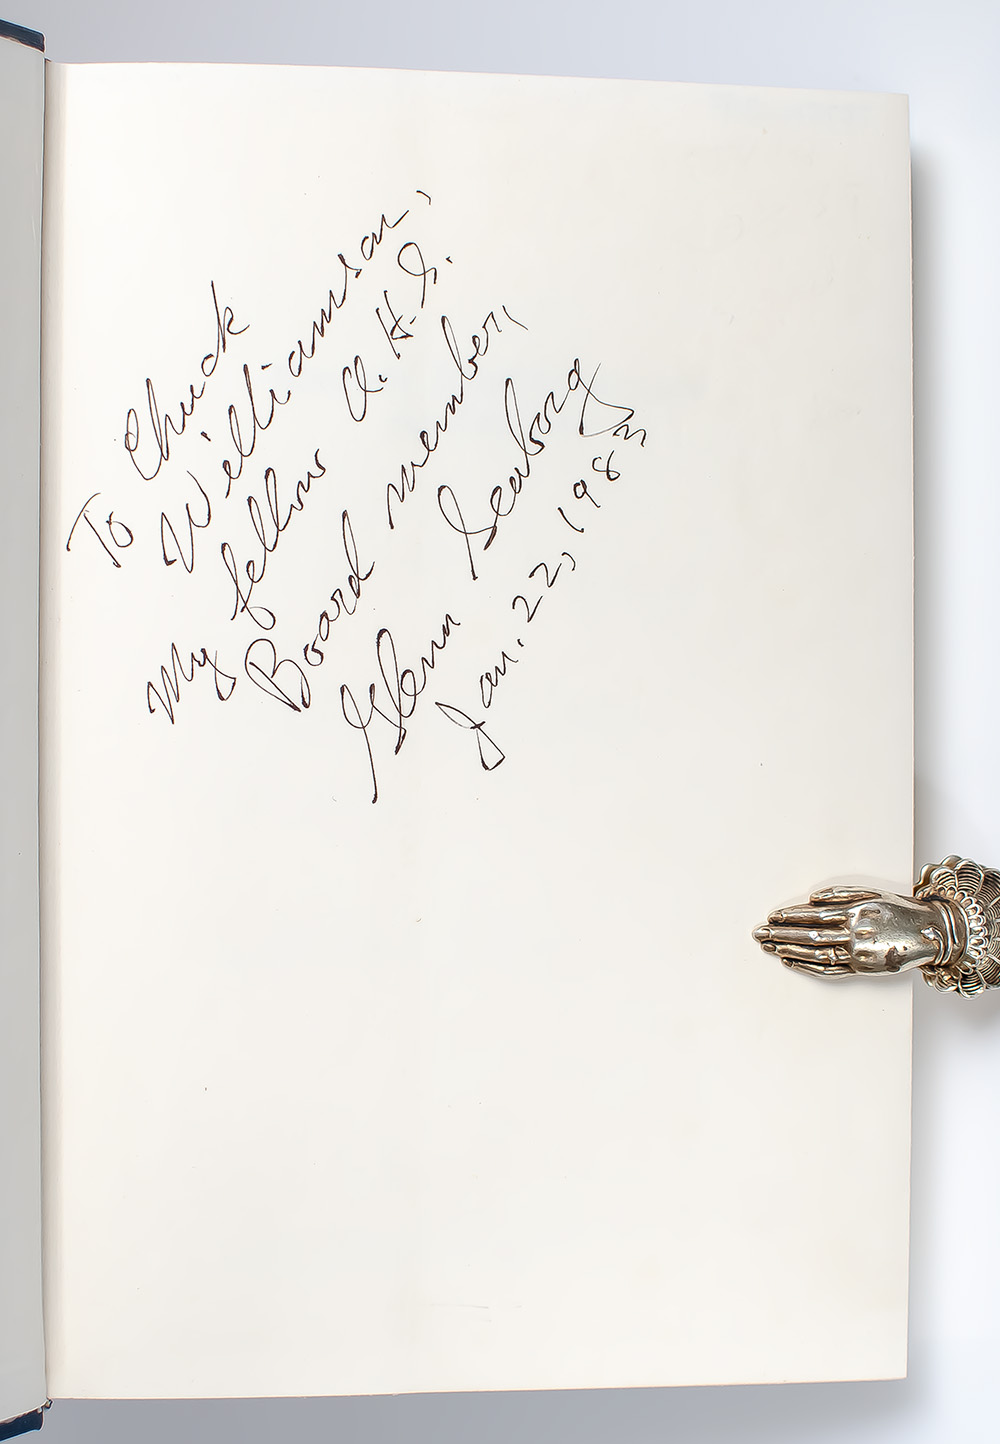 To Chuck
Williamson,
my fellow A.H.S.
Board member,
Glenn Seaborg
Jan. 22, 1983